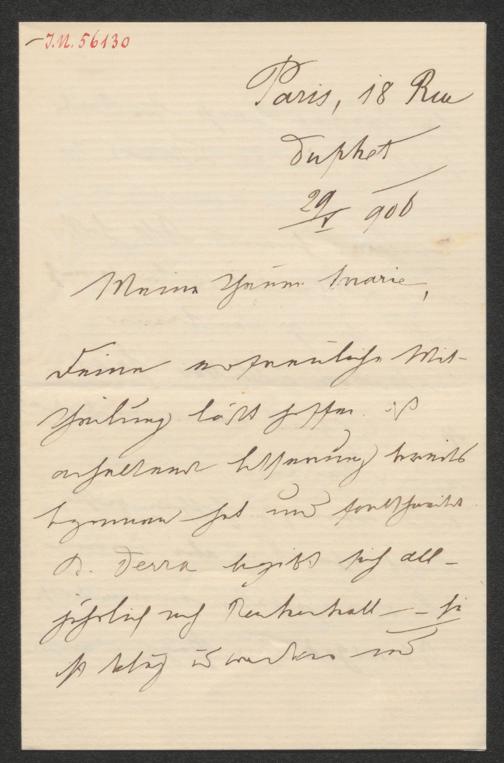 J.N. 56130
Paris, 18 Rue
Duphot
29/V 906
Meine theure Marie,
Deine erfreuliche Mit-
theilung läßt hoffen daß
anhaltend Besserung bereits
begonnen hat und fortschreitet.
D. Derra begibt sich all-
jährlich nach Reichenhall – Sie
ist und